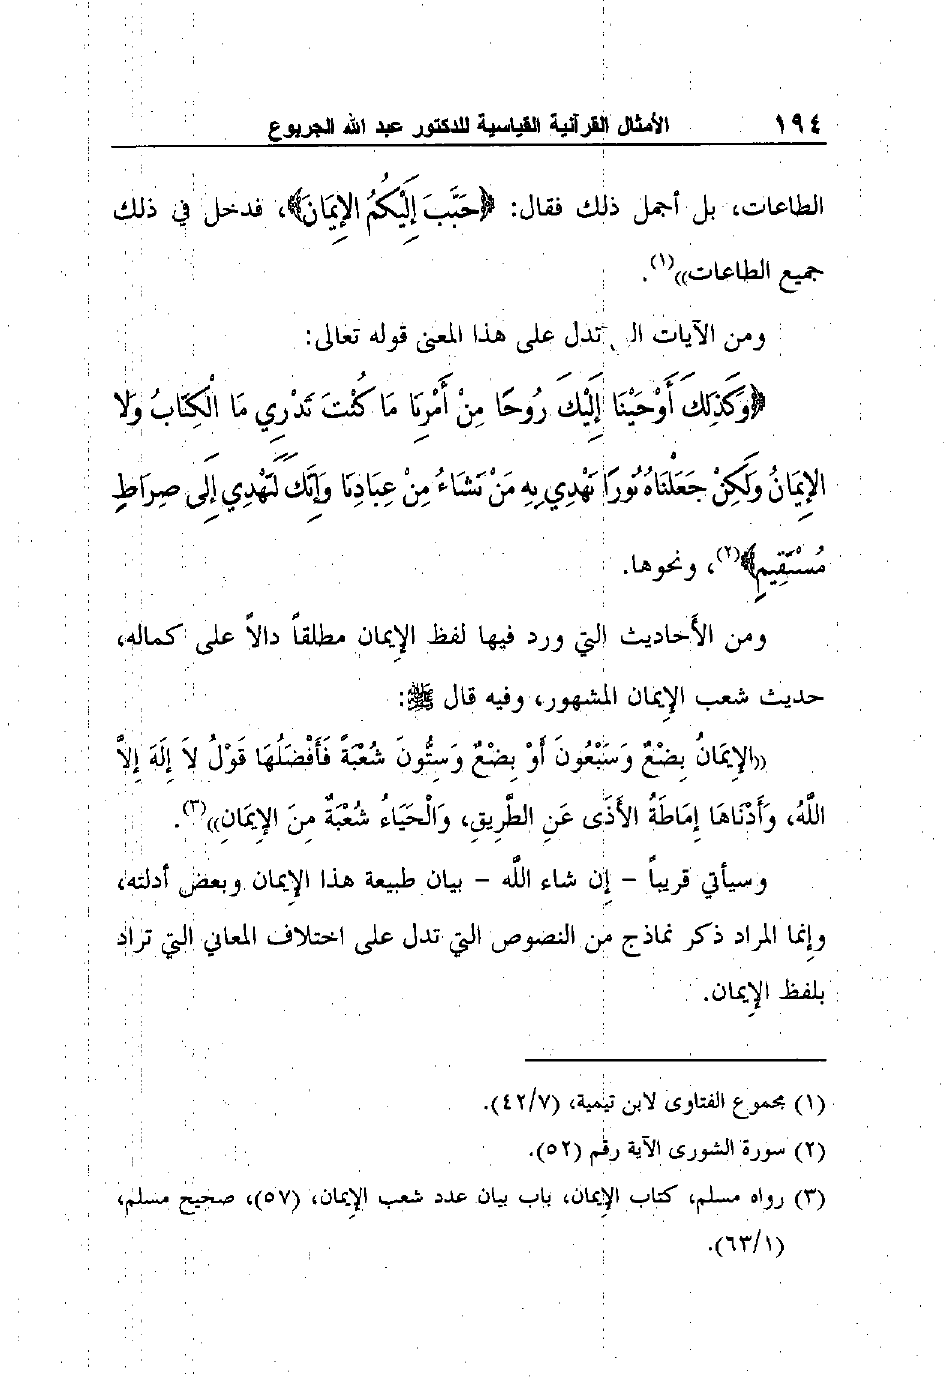 ١٩٤ الأمثال القرآنية القياسية للدكتور عبد الله الجربوع
الطاعات، بل أجمل ذلك فقال: ﴿حَبَّبَ إِلَيْكُمُ الإِيمَانَ﴾، فدخل في ذلك
جميع الطاعات))(١).
ومن الآيات تدل على هذا المعنى قوله تعالى:
﴿وَكَذَلِكَ أَوْحَيْنَا إِلَيْكَ رُوحًا مِنْ أَمْرِنَا مَا كُنْتَ تَدْرِي مَا الْكِتَابُ وَلَا
الإِيمَانُ وَلَكِنْ جَعَلْنَاهُ نُورًا نَهْدِي بِهِ مَنْ نَشَاءُ مِنْ عِبَادِنَا وَإِنَّكَ لَتَهْدِي إِلَى صِرَاطٍ
مُسْتَقِيمٍ﴾(٢)، ونحوها.
ومن الأحاديث التي ورد فيها لفظ الإيمان مطلقاً دالاً على كماله،
حديث شعب الإيمان المشهور، وفيه قال ﷺ:
((الإِيمَانُ بِضْعٌ وَسَبْعُونَ أَوْ بِضْعٌ وَسِتُّونَ شُعْبَةً فَأَفْضَلُهَا قَوْلُ لاَ إِلَهَ إِلاَّ
اللَّهُ، وَأَدْنَاهَا إِمَاطَةُ الأَذَى عَنِ الطَّرِيقِ، وَالْحَيَاءُ شُعْبَةٌ مِنَ الإِيمَانِ))(٣).
وسيأتي قريباً - إن شاء اللَّه - بيان طبيعة هذا الإيمان وبعض أدلته،
وإنما المراد ذكر نماذج من النصوص التي تدل على اختلاف المعاني التي تراد
بلفظ الإيمان.
(١) مجموع الفتاوى لابن تيمية، (٤٢/٧).
(٢) سورة الشورى الآية رقم (٥٢).
(٣) رواه مسلم، كتاب الإيمان، باب بيان عدد شعب الإيمان، (٥٧)، صحيح مسلم،
(٦٣/١).